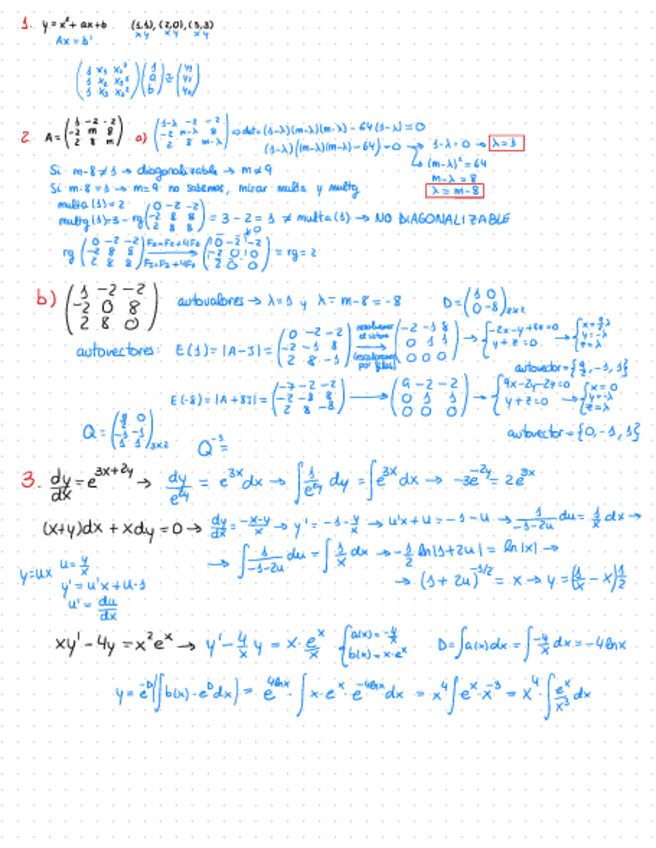 1. y = x² + ax + b (1,1), (2,0), (3,3)
x y x y x y
Ax = b
(1 x₁ x₁² / 1 x₂ x₂² / 1 x₃ x₃²) (1 / a / b) = (y₁ / y₂ / y₃)
2. A = (1 -2 -2 / -2 m 8 / 2 8 m) a) (1-λ -2 -2 / -2 m-λ 8 / 2 8 m-λ) ⇒ det = (1-λ)(m-λ)(m-λ) - 64(1-λ) = 0
(1-λ)((m-λ)(m-λ) - 64) = 0 → 1-λ = 0 → λ = 1
(m-λ)² = 64
m-λ = 8
λ = m-8
Si m-8 ≠ 1 → diagonalizable → m ≠ 9
Si m-8 = 1 → m = 9 no sabemos, mirar multa y multg
multa (1) = 2
multg (1) = 3 - rg (0 -2 -2 / -2 8 8 / 2 8 8) = 3 - 2 = 1 ≠ multa (1) → NO DIAGONALIZABLE
rg (0 -2 -2 / -2 8 8 / 2 8 8) F₂=F₂+4F₁ F₃=F₃+4F₁ = rg = 2
b) (1 -2 -2 / -2 0 8 / 2 8 0) autovalores → λ = 1 y λ = m-8 = -8 D = (1 0 / 0 -8)₂ₓ₂
autovectores: E(1) = |A-I| = (0 -2 -2 / -2 -1 8 / 2 8 -1) → (-2 -1 8 / 0 1 1 / 0 0 0) → {-2x-y+8z=0 / y+z=0 →
autovector = { , -1, 1}
E(-8) = |A+8I| = → (9 -2 -2 / 0 1 1 / 0 0 0) → {9x-2y-2z=0 / y+z=0 → {x=0 / y=-λ / z=λ
autovector = {0, -1, 1}
Q = ₃ₓ₂ Q⁻¹ =
3. dy/dx = e^(3x+2y) → dy/e^(2y) = e^(3x) dx → ∫ 1/e^(2y) dy = ∫ e^(3x) dx → -3e^(-2y) = 2e^(3x)
(x+y)dx + xdy = 0 → dy/dx = (-x-y)/x → y' = -1 - y/x → u'x + u = -1 - u → 1/(-1-2u) du = 1/x dx →
→ ∫ 1/(-1-2u) du = ∫ 1/x dx → -1/2 ln|1+2u| = ln|x| →
y = ux u = y/x
y' = u'x + u·1
u' = du/dx
→ (1+2u)^(-1/2) = x → y = (1/x - x) 1/2
xy' - 4y = x²eˣ → y' - 4/x y = x·eˣ {a(x) = -4/x / b(x) = x·eˣ D = ∫a(x)dx = ∫ -4/x dx = -4lnx
y = e^(-D) (∫ b(x)·e^D dx) = e^(4lnx) · ∫ x·eˣ·e^(-4lnx) dx = x⁴ ∫ eˣ·x⁻³ = x⁴ · ∫ eˣ/x³ dx